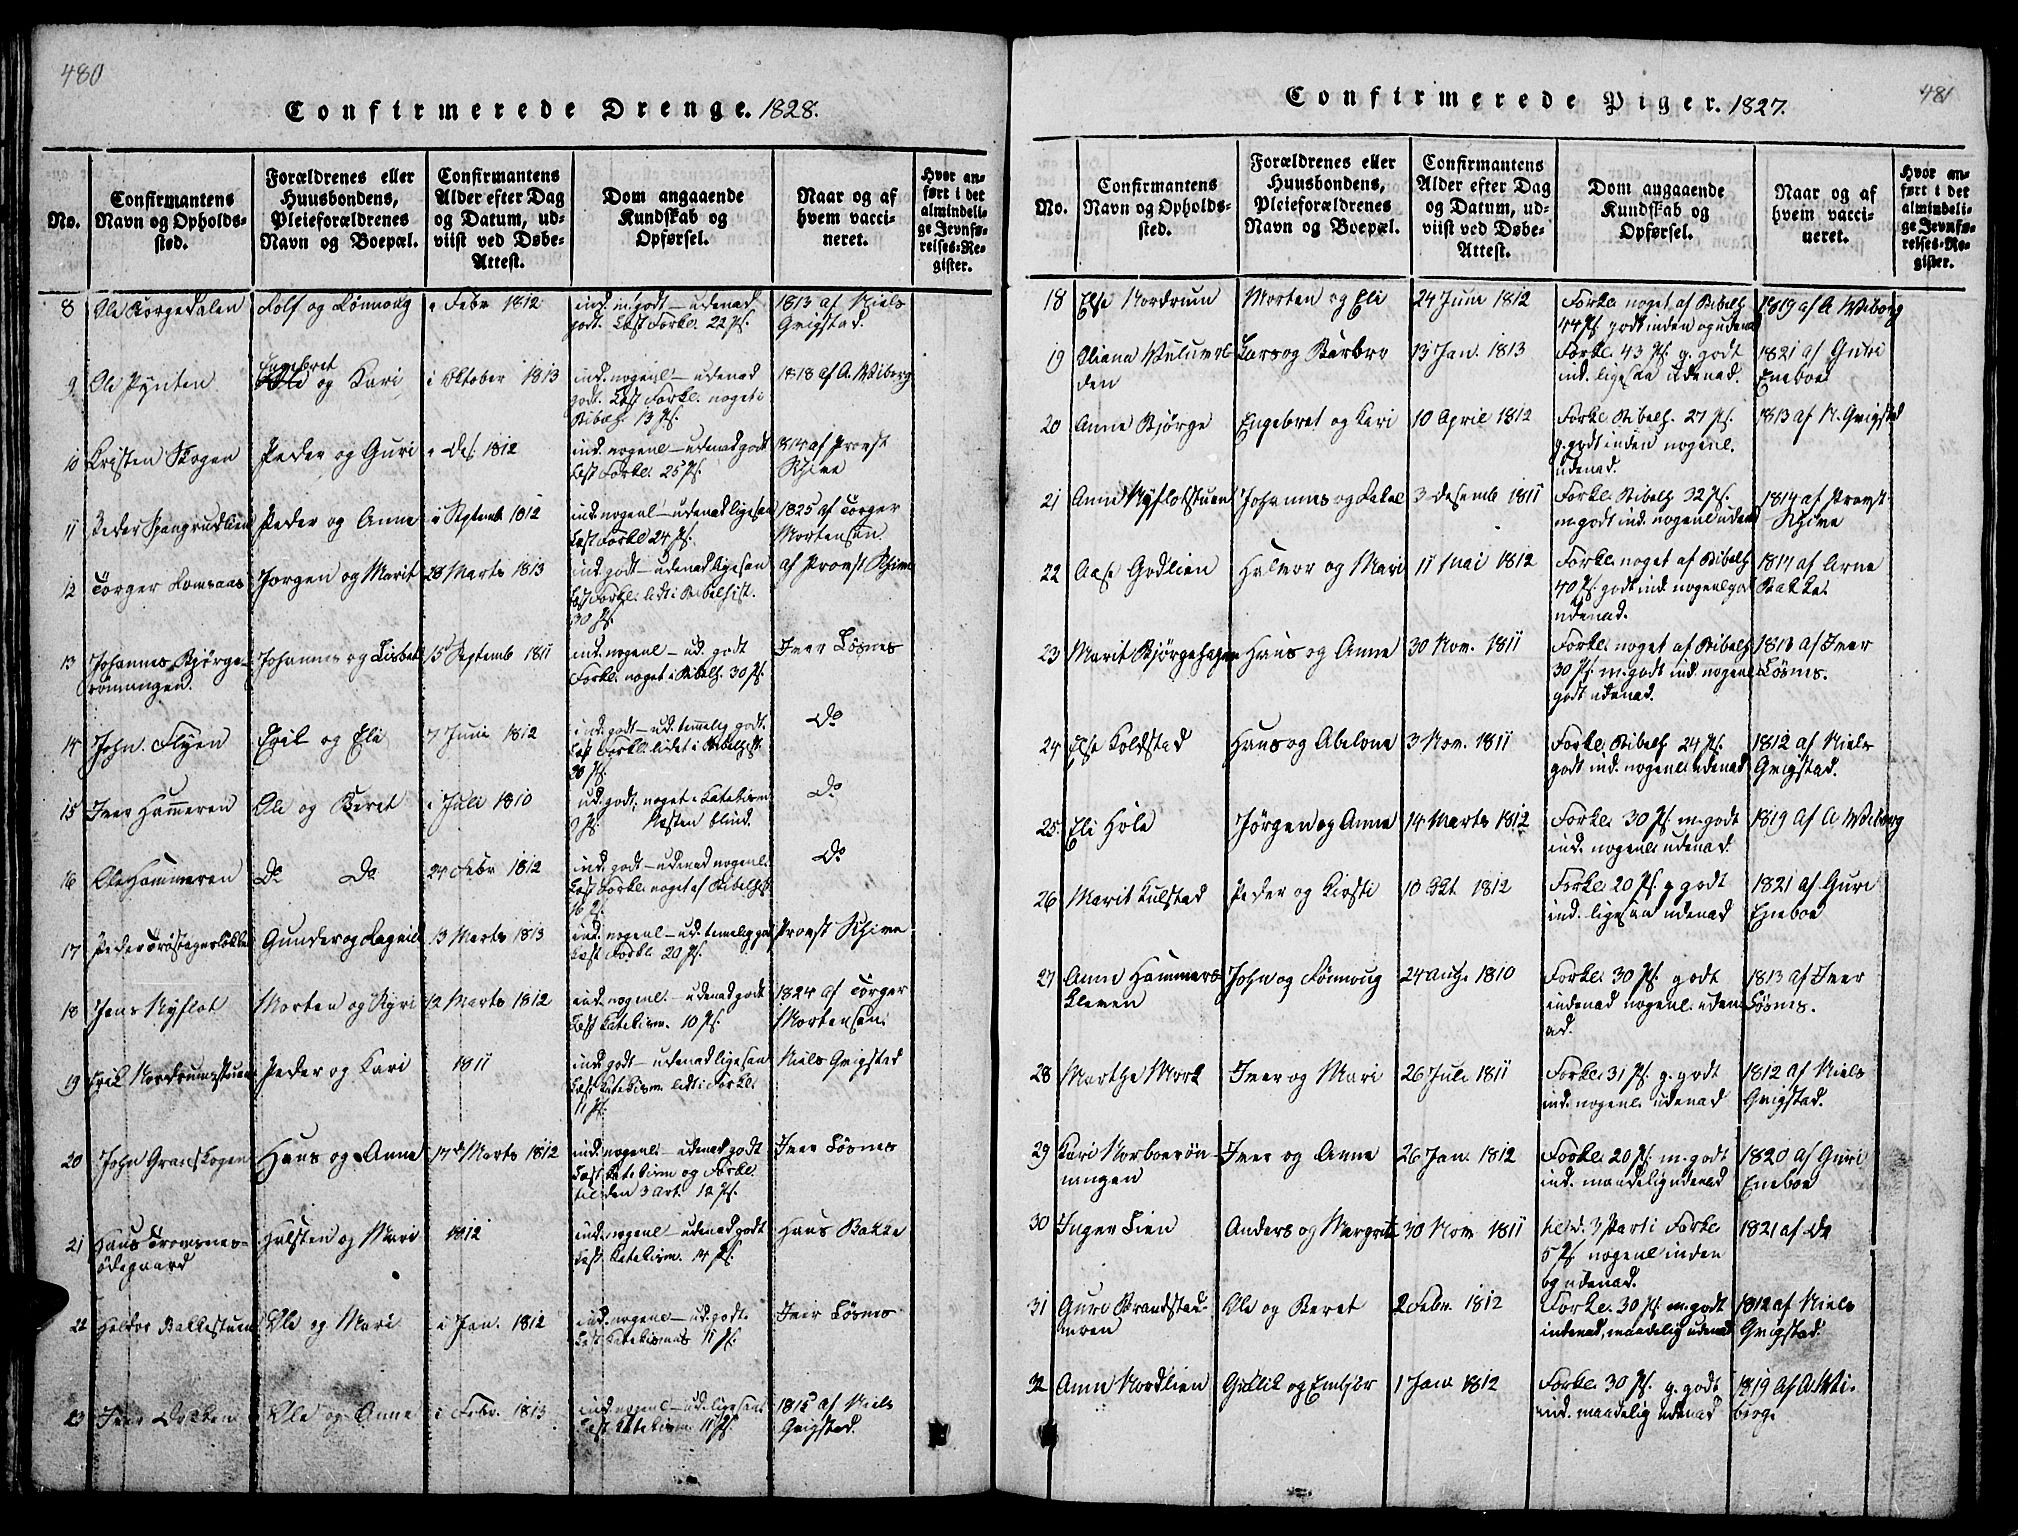 480
Confirmerede Drenge. 1828.
No.
Confirmantens Navn og Opholdssted.
Forældrenes eller Huusbondens, Pleieforældrenes Navn og Boepæl.
Confirmantens Alder efter Dag og Datum, udviist ved Døbe-Attest.
Dom angaaende Kundskab og Opførsel.
Naar og af hvem vaccineret.
Hvor anført i det almindelige Jevnførelses-Register.
8 Ole Rolf og Rønnoug i Febr 1812 ind. m godt – udenad godt. Læst Forkl. 22 Ps. 1813 af Niels Qvigstad.
9 Ole Pynten Engebret og Kari i Oktober 1813 ind. nogenl – udenad godt. Læst Forkl. noget i Bibelh. 13 Ps. 1818 af A. Wiborg
10 Kristen Skogen Peder og Guri i Des. 1812 ind. nogenl – udenad godt Læst Forkl. 25 Ps. 1814 af Provst
11 Peder Peder og Anne i Septemb 1812 ind. nogenl – udenad ligesaa Læst Forkl 24 Ps. 1825 af Torger Mortensen
12 Torger Jørgen og Marit 28 Marts 1813 ind. godt – udenad ligesaa Læst Forkl. lidt i Bibelhist. 30 Ps. af Provst
13 Johannes Johannes og Lisbet 15 Septemb 1811 ind. nogenl – ud. godt Forkl. noget i Bibelh. 30 Ps. Iver Løsnes
14 John Flyen Egil og Eli 7 Juni 1812 ind. godt – ud. temelig godt. Læst Forkl. lidet i Bibelhist. 30 Ps. Do
15 Iver Hammeren Ole og Beret i Juli 1810 ud. godt, noget i Katekism 9 Ps. Næsten blind. Do
16 Ole Hammeren Do Do 24 Febr 1812 ind. godt – udenad nogenl. Læst Forkl. noget af Bibelhist. 16 Ps. Do
17 Peder Gunder og Ragnild 13 Marts 1813 ind. nogenl – ud. temelig godt Læst Forkl. 20 Ps. Provst
18 Jens Nyflot Morten og Kari 12 Marts 1812 ind. nogenl. – udenad godt Læst Katekism. 10 Ps. 1824 af Torger Mortensen.
19 Erik Nordrumsstuen Peder og Kari 1811 ind. godt – udenad ligesaa Læst Katekism lidt i Forkl. 11 Ps. Niels Qvigstad
20 John Granskogen Hans og Anne 17de Marts 1812 ind. nogenl – udenad godt Læst Katekism og Forkl. til den 3 Art. 12 Ps. Iver Løsnes
21 Hans Tromsnes-ødegaard Halsten og Mari 1812 ind. nogenl – udenad godt Læst Katekism. 14 Ps. Hans Bakke
22 Haldor Ballestuen Ole og Mari i Jan. 1812 ind. nogenl – ud. godt. Læst Katekismus 11 Ps. Iver Løsnes
23 Iver Dokken Ole og Anne i Febr. 1813 ind. nogenl – ud. ligesaa Læst Katekism. 11 Ps. 1815 af Niels Qvigstad.
481
Confirmerede Piger. 1827.
No.
Confirmantens Navn og Opholdssted.
Forældrenes eller Huusbondens, Pleieforældrenes Navn og Boepæl.
Confirmantens Alder efter Dag og Datum, udviist ved Døbe-Attest.
Dom angaaende Kundskab og Opførsel.
Naar og af hvem vaccineret.
Hvor anført i det almindelige Jevnførelses-Register.
18 Else Nordrum Morten og Eli 24 Juni 1812 Forkl. noget af Bibelh. 44 Ps. godt inden og udenad 1819 af A Wiborg
19 Lars og Barbro 13 Jan. 1813 Forkl. 43 Ps. g. godt ind. ligesaa udenad. 1821 af Guri Eneboe
20 Anne Bjørge Engebret og Kari 10 April 1812 Forkl. Bibelh. 27 Ps. g. godt inden nogenl. udenad. 1813 af N. Qvigstad
21 Anne Nyflotstuen Johannes og Rakel 3 Desemb 1811 Forkl. Bibelh. 32 Ps. m godt ind. nogenl udenad 1814 af Provst
22 Aase Godlien Halvor og Mari 11 Mai 1812 Forkl. noget af Bibelh 40 Ps. godt ind. nogenl godt udenad. 1814 af Arne Bakke.
23 Marit Bjørgehagen Hans og Anne 30 Nov. 1811 Forkl. noget af Bibelh. 30 Ps. m. godt ind. nogenl. godt udenad. 1813 af Iver Løsnes.
24 Else Koldstad Hans og Abelone 3 Nov. 1811 Forkl. Bibelh 24 Ps. godt ind. nogenl udenad 1812 af Niels Qvigstad.
25 Eli Hole Jørgen og Anne 14 Marts 1812 Forkl. 30 Ps. m. godt ind. nogenl. udenad. 1819 af A Wiborg
26 Marit Kulstad Peder og Kirsti 18 Okt 1812 Forkl. 20 Ps. g godt ind. ligesaa udenad 1821 af Guri Eneboe
27 Anne Hammerskleven John og Rønnoug 24 Aug. 1810 Forkl. 30 Ps. g godt indenad nogenl. udenad. 1813 af Iver Løsnes.
28 Marthe Mork Iver og Mari 26 Juli 1811 Forkl. 31 Ps. g. godt ind. nogenl. udenad 1812 af Niels Qvigstad.
29 Kari Iver og Anne 26 Jan. 1812 Forkl. 20 Ps. m. godt ind. maadelig udenad 1820 af Guri Eneboe
30 Inger Lien Anders og Margrit 30 Nov 1811 til d. 3 Part i Forkl. 5 Ps nogenl inden og udenad. 1821 af Do
31 Guri Brandstadmoen Ole og Beret 2 Febr. 1812 Forkl. 30 Ps. m. godt indenad, maadelig udenad 1812 af Niels Qvigstad.
32 Anne Nordlien Gullik og Embjør 1 Jan 1812 Forkl. 30 Ps. g. godt ind. maadelig udenad 1819 af A. Wiborg